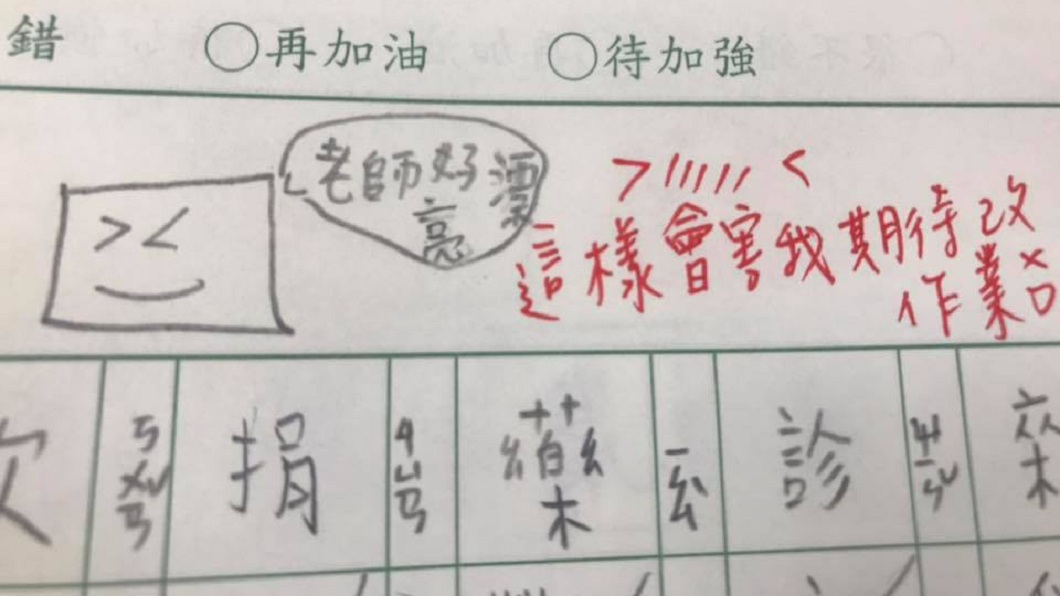 錯 ○再加油 ○待加強
老師好漂
亮
這樣會害我期待改
作業
捐 ㄐㄩㄢ 藥 ㄧㄠˋ 診 ㄓㄣˇ